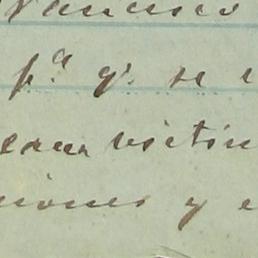 rancisco
p.ª q.º se
sean victim
iones y e